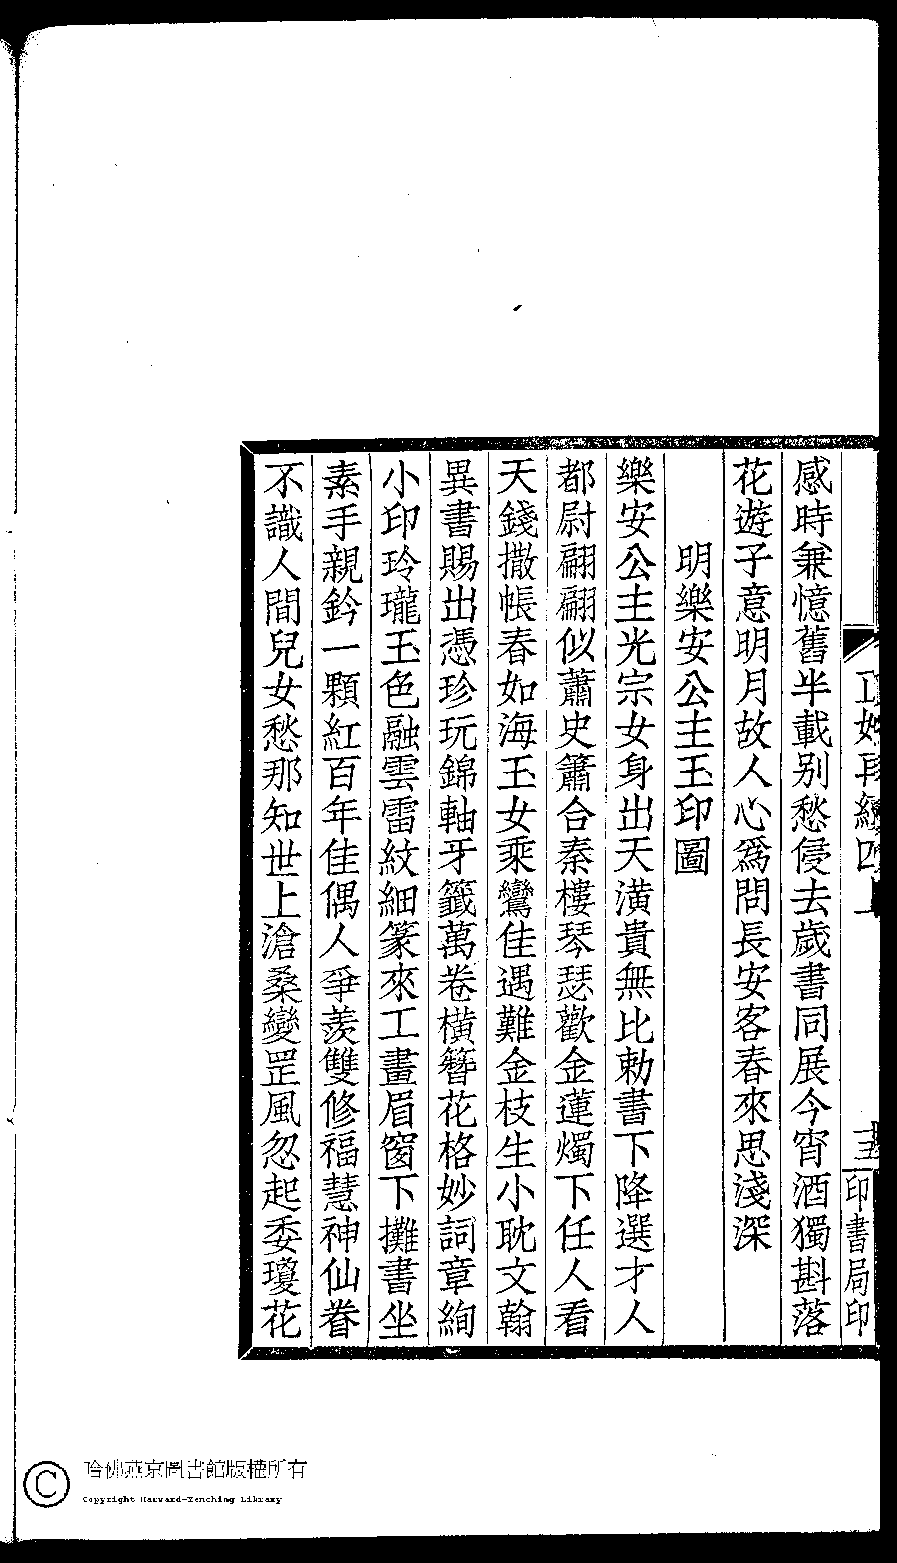 感時兼憶舊半載別愁侵去歲書同展今宵酒獨斟落
花遊子意明月故人心爲問長安客春來思淺深
明樂安公主玉印圖
樂安公主光宗女身出天潢貴無比勅書下降選才人
都尉翩翩似蕭史簫合秦樓琴瑟歡金蓮燭下任人看
天錢撒帳春如海玉女乘鸞佳遇難金枝生小耽文翰
異書賜出憑珍玩錦軸牙籤萬卷橫簪花格妙詞章絢
小印玲瓏玉色融雲雷紋細篆來工畫眉窗下攤書坐
素手親鈐一顆紅百年佳偶人爭羨雙修福慧神仙眷
不識人間兒女愁那知世上滄桑變罡風忽起委瓊花
印書局印
哈佛燕京圖書館版權所有
Copyright Harvard-Yenching Library